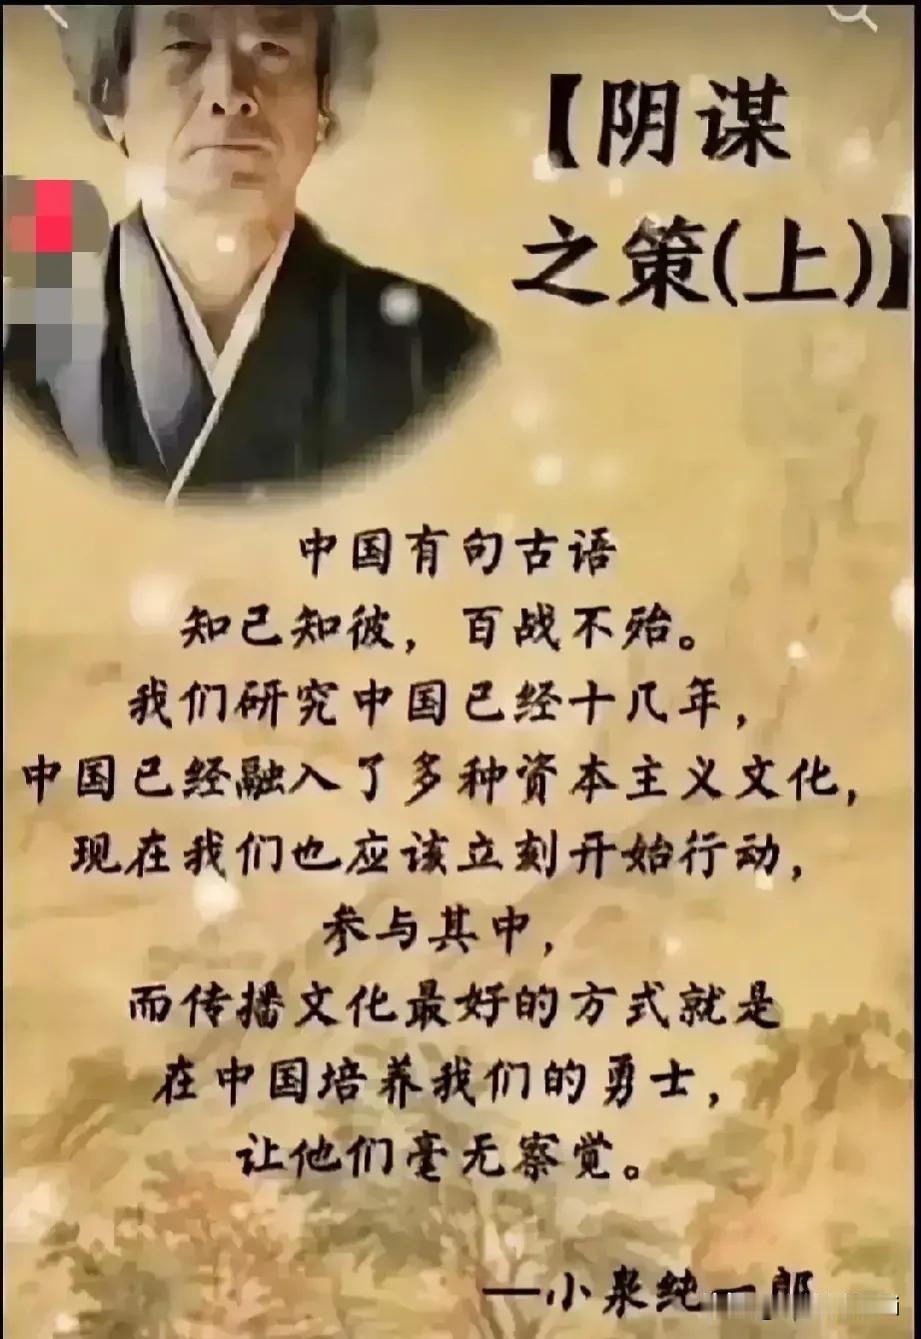 【阴谋
之策(上)】
中国有句古语
知己知彼，百战不殆。
我们研究中国已经十几年，
中国已经融入了多种资本主义文化，
现在我们也应该立刻开始行动，
参与其中，
而传播文化最好的方式就是
在中国培养我们的勇士，
让他们毫无察觉。
—小泉纯一郎